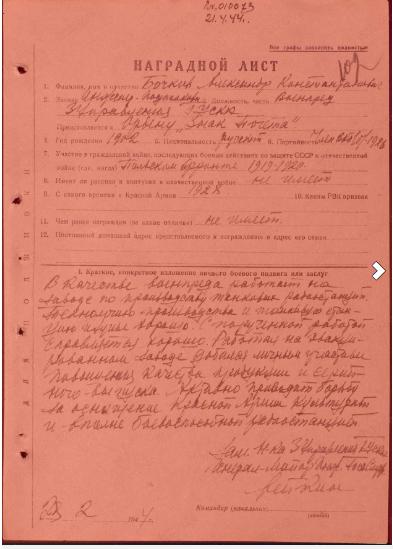 Пр. 010073
21.4.44.
Все графы заполнять полностью
НАГРАДНОЙ ЛИСТ
1. Фамилия, имя и отчество Бочков Александр Константинович
2. Звание Инженер-подполковник Должность, часть Военпред
3 Управления ГУСКА
Представляется к Ордену "Знак Почета"
4. Год рождения 1902 5. Национальность русский 6. Партийность Член ВКП(б)
7. Участие в гражданской войне, последующих боевых действиях по защите СССР и отечественной
войне (где, когда) Польском фронте 1919-1920
8. Имеет ли ранения и контузии в отечественной войне не имеет
9. С какого времени в Красной Армии 1928 10. Каким РВК призван
11. Чем ранее награжден (за какие отличия) не имеет.
12. Постоянный домашний адрес представляемого к награждению и адрес его семьи
I. Краткое, конкретное изложение личного боевого подвига или заслуг
В качестве военпреда работает на
заводе по производству танковых радиостанций.
Технологию производства и танковую
изучил хорошо. С порученной работой
справляется хорошо. Работая на эвакуи-
рованном заводе добился личным участием
повышения качества продукции и серий-
ного выпуска. Активно проводит борьбу
за оснащение Красной Армии
и вполне боеспособной радиостанцией
Зам. Н-ка 3 Управления ГУСКА
Генерал-майор
2 1944 г.
Командир (начальник)
(подпись)